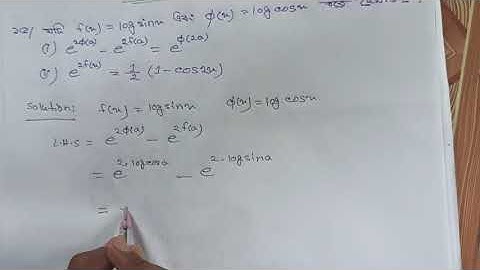 22/ যদি f(x) = log sinx এবং φ(x) = log cosx
(i) e^{2φ(a)} - e^{2f(a)} = e^{φ(2a)}
(ii) e^{2f(x)} = 1/2 (1-cos2x)
Solution: f(x) = log sinx φ(x) = log cosx
L.H.S = e^{2φ(a)} - e^{2f(a)}
= e^{2.log cosa} - e^{2.log sina}
=